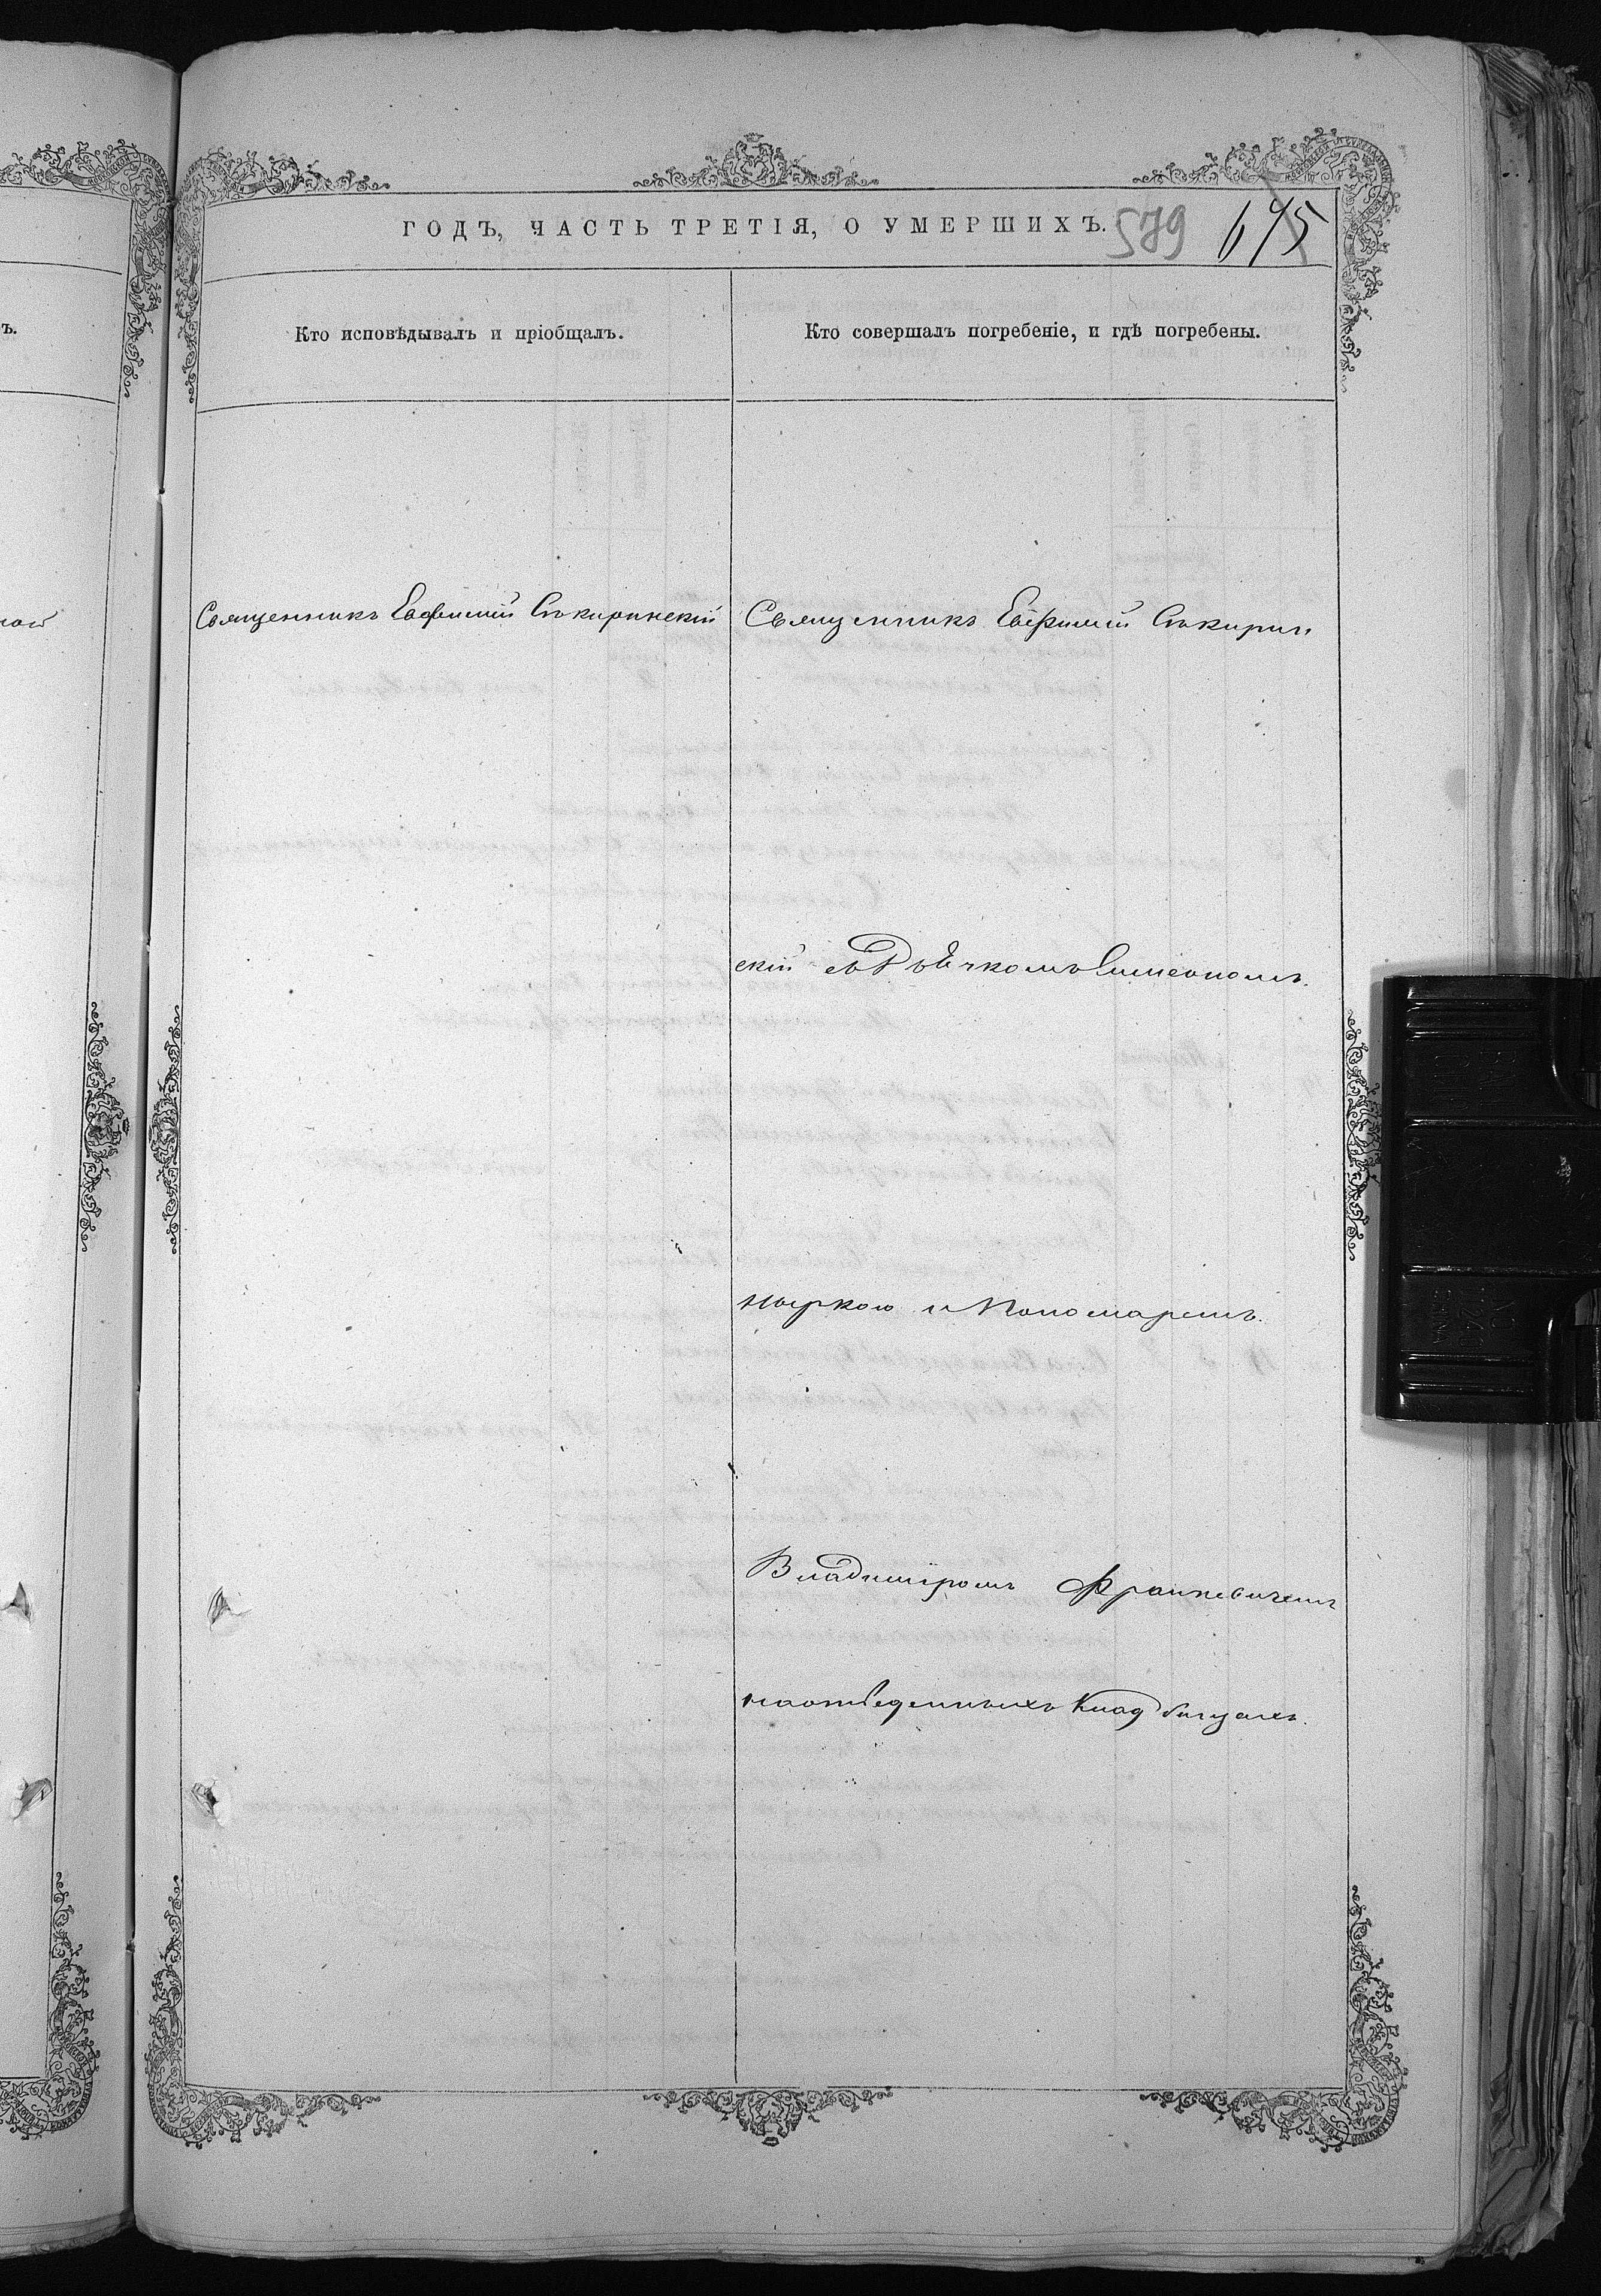 ГОДЪ, ЧАСТЬ ТРЕТІЯ, О УМЕРШИХЪ. 579 675
Кто исповѣдывалъ и пріобщалъ.
Кто совершалъ погребеніе, и гдѣ погребены.
Священникъ Евфимій Сѣкиринскій
Священникъ Евфимій Сѣкирин
скій съ Дьячкомъ Симеономъ
и Пономаремъ
Владиміромъ Франкевичемъ
на отведенныхъ Кладбищахъ.